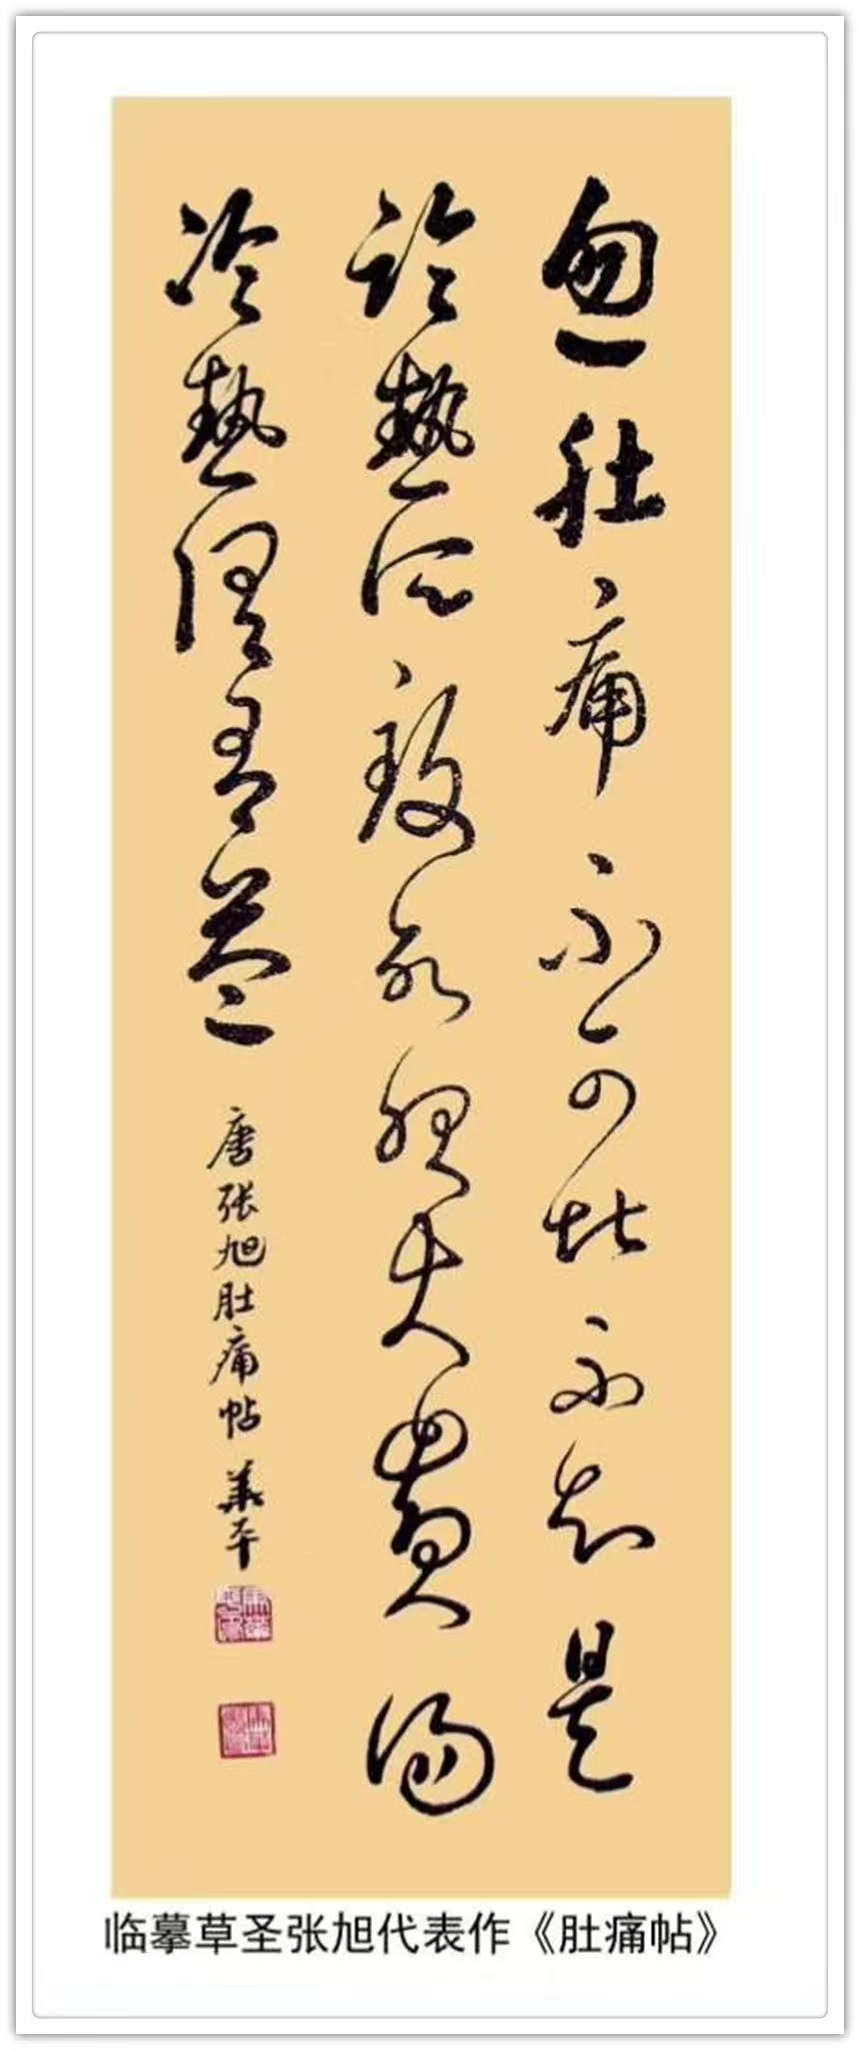 忽肚痛不可堪不知是
冷熱所致欲服大黃湯
冷熱俱有益
唐張旭肚痛帖 平
临摹草圣张旭代表作《肚痛帖》